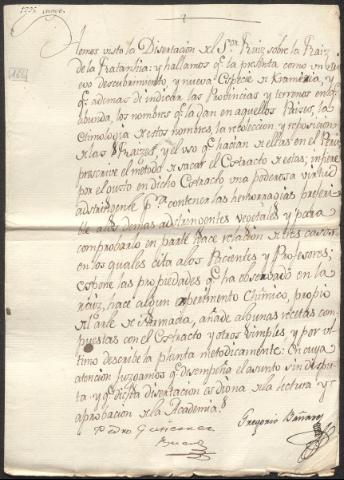 Hemos visto la Disertacion del Sor Ruiz sobre la Raiz
de la Ratanhia: y hallamos qe la presenta como un nu
evo descubrimiento, y nueva Especie de Krameria, y
qe ademas de indicar las Provincias y terrenos en qe
abunda, los nombres qe la dan en aquellos Paises, la
etimologia de estos nombres, la recoleccion, y reposicion
de las Raizes, y el uso qe hacian de ellas en el Perú,
prescrive el método de sacar el Extracto de estas; infiere
por el gusto en dicho Extracto una poderosa virtud
adstringente pa contener las hemorragias preferi
ble a los demas adstringentes vegetales y para
comprobarlo en parte hace relacion de tres casos
en los quales cita a los Pacientes y Profesores;
expone las propiedades qe ha observado en la
raiz, hace algun experimento Chîmico, propio
del arte de Farmacia, añade algunas recetas com
puestas con el Extracto y otros simples y por ul
timo describe la planta metodicamente: En cuya
atencion juzgamos qe desempeña el asunto sin dispu
ta, y qe dicha disertacion es digna de la lectura y
aprobacion de la Academia.
Pedro Gutierrez
Bueno
Gregorio Bañares